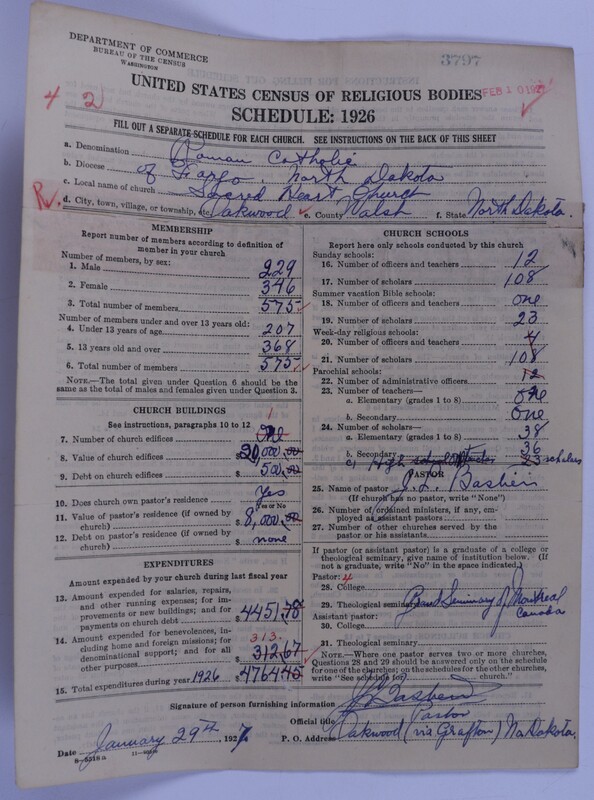 DEPARTMENT OF COMMERCE
BUREAU OF THE CENSUS
WASHINGTON
3797
UNITED STATES CENSUS OF RELIGIOUS BODIES
FEB 10 1927
SCHEDULE: 1926
4 2
FILL OUT A SEPARATE SCHEDULE FOR EACH CHURCH. SEE INSTRUCTIONS ON THE BACK OF THIS SHEET
a. Denomination Roman Catholic
b. Diocese of Fargo. North Dakota
c. Local name of church Sacred Heart Church
R.
d. City, town, village, or township, etc. Oakwood e. County Walsh f. State North Dakota.
MEMBERSHIP
Report number of members according to definition of member in your church
Number of members, by sex:
1. Male 229
2. Female 346
3. Total number of members 575
Number of members under and over 13 years old:
4. Under 13 years of age 207
5. 13 years old and over 368
6. Total number of members 575
NOTE.—The total given under Question 6 should be the same as the total of males and females given under Question 3.
CHURCH BUILDINGS
See instructions, paragraphs 10 to 12
7. Number of church edifices One 1
8. Value of church edifices $20,000.00
9. Debt on church edifices $ 500.00
10. Does church own pastor's residence Yes
Yes or No
11. Value of pastor's residence (if owned by church) $ 8,000.00
12. Debt on pastor's residence (if owned by church) $ none
EXPENDITURES
Amount expended by your church during last fiscal year
13. Amount expended for salaries, repairs, and other running expenses; for improvements or new buildings; and for payments on church debt $ 4451.78
14. Amount expended for benevolences, including home and foreign missions; for denominational support; and for all other purposes $ 312.67
313.
15. Total expenditures during year 1926 $ 4764.45
CHURCH SCHOOLS
Report here only schools conducted by this church
Sunday schools:
16. Number of officers and teachers 12
17. Number of scholars 108
Summer vacation Bible schools:
18. Number of officers and teachers one
19. Number of scholars 23
Week-day religious schools:
20. Number of officers and teachers 4
21. Number of scholars 108
Parochial schools:
22. Number of administrative officers 12
23. Number of teachers—
a. Elementary (grades 1 to 8) one
b. Secondary One
24. Number of scholars—
a. Elementary (grades 1 to 8) 38
b. Secondary 36
c, High school 23 scholars
PASTOR
25. Name of pastor J. L. Bastien
(If church has no pastor, write "None")
26. Number of ordained ministers, if any, employed as assistant pastors
27. Number of other churches served by the pastor or his assistants
If pastor (or assistant pastor) is a graduate of a college or theological seminary, give name of institution below. (If not a graduate, write "No" in the space indicated.)
Pastor: 4
28. College
29. Theological seminary Grand Seminary of Montreal Canada
Assistant pastor:
30. College
31. Theological seminary
NOTE.—Where one pastor serves two or more churches, Questions 28 and 29 should be answered only on the schedule for one of the churches; on the schedules for the other churches, write "See schedule for church."
Signature of person furnishing information J L Bastien
Official title Pastor
Date January 29th, 1927
P. O. Address Oakwood (via Grafton) No Dakota.